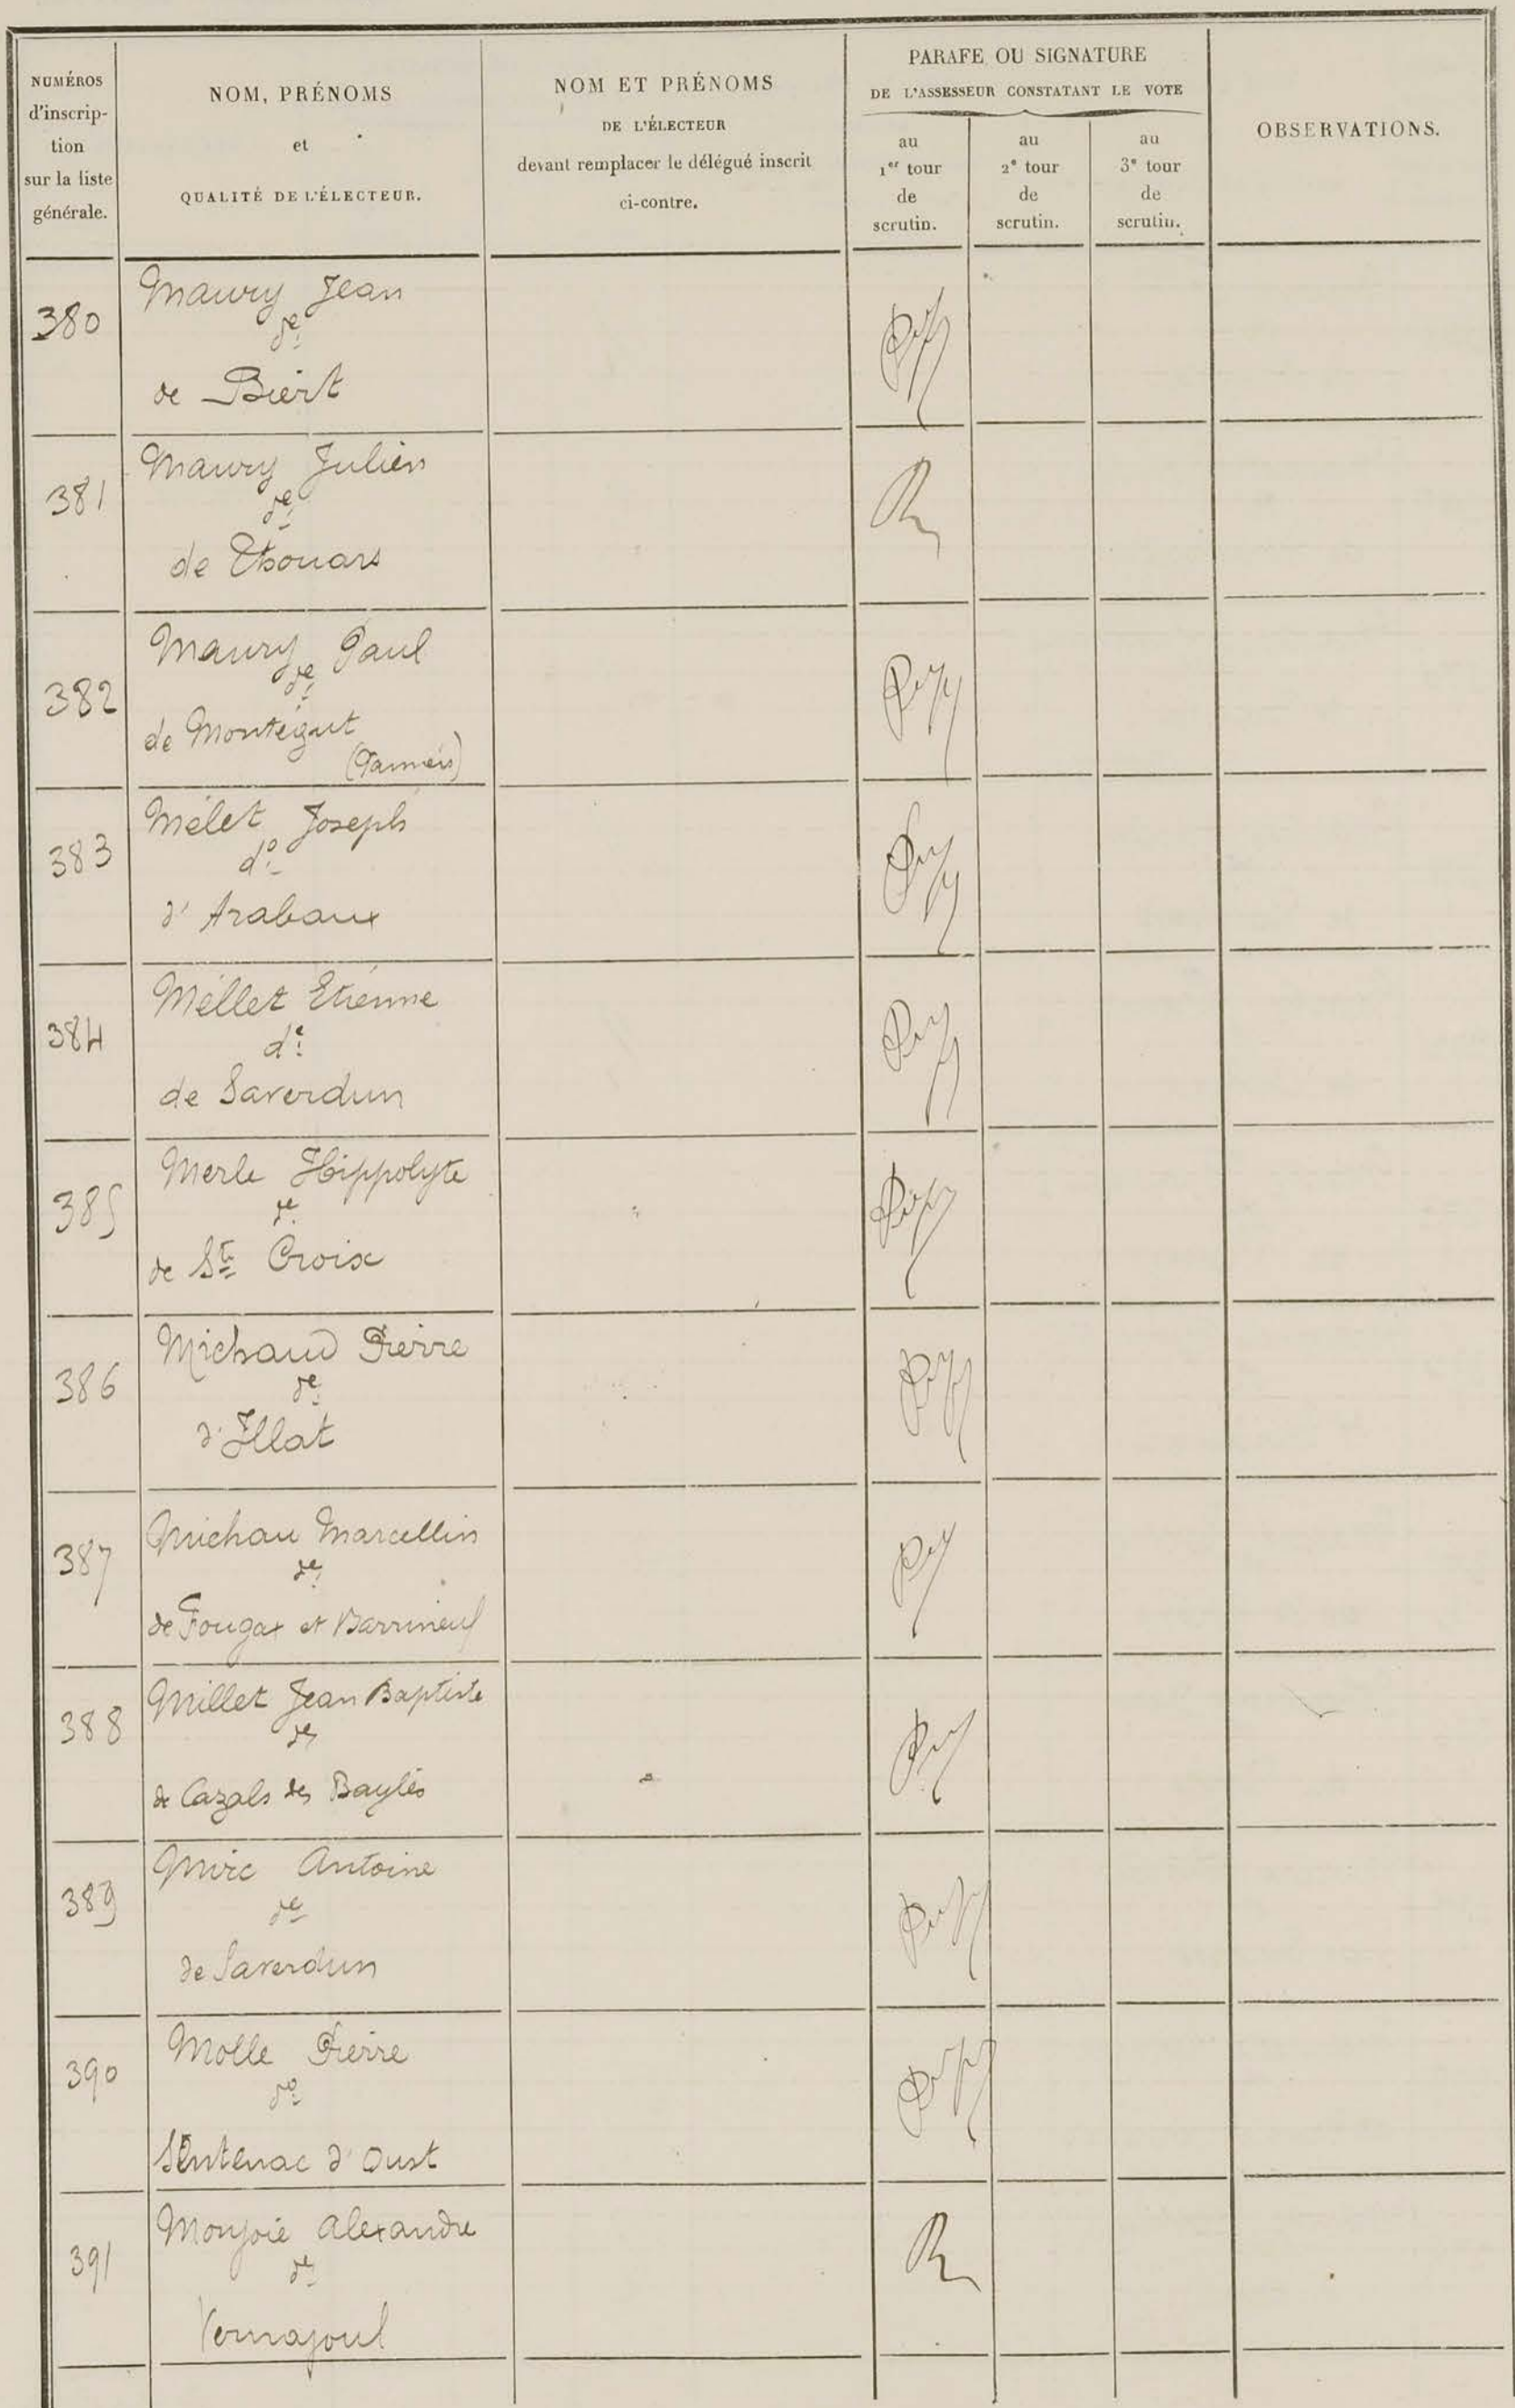 NUMÉROS
d'inscrip-
tion
sur la liste
générale.
NOM, PRÉNOMS
et
QUALITÉ DE L'ÉLECTEUR.
NOM ET PRÉNOMS
DE L'ÉLECTEUR
devant remplacer le délégué inscrit
ci-contre.
PARAFE OU SIGNATURE
DE L'ASSESSEUR CONSTATANT LE VOTE
au
1er tour
de
scrutin.
au
2e tour
de
scrutin.
au
3e tour
de
scrutin.
OBSERVATIONS.
380
Maury Jean
de
de Biert
381
Maury Julien
de
de Thouars
382
Maury Paul
de
de Montégut
(Pamiers)
383
Mélet Joseph
do
d'Arabaux
384
Méllet Etienne
de
de Saverdun
385
Merle Hippolyte
de
de Ste Croix
386
Michaud Pierre
de
d'Illat
387
Michau Marcellin
de
de Fougax et Barrineuf
388
Millet Jean Baptiste
de
de Cazals des Baylès
389
Mirc Antoine
de
de Saverdun
390
Molle Pierre
do
Sentenac d'Oust
391
Monjoie Alexandre
de
Vernajoul